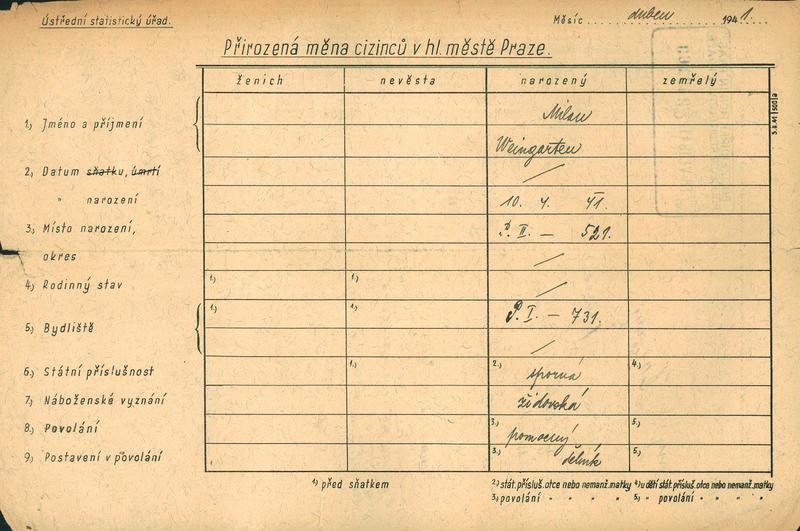 Ústřední statistický úřad.
Měsíc duben 1941.
Přirozená měna cizinců v hl. městě Praze.
ženich nevěsta narozený zemřelý
1.) Jméno a příjmení Milan
Weingarten
2.) Datum sňatku, úmrtí /
" narození 10. 4. 41.
3.) Místo narození, P. II. — 521.
okres /
4.) Rodinný stav 1.) 1.) /
5.) Bydliště 1.) 1.) P. I. — 731.
/
6.) Státní příslušnost 1.) 2.) sporná 4.)
7.) Náboženské vyznání židovská
8.) Povolání 3.) pomocný 5.)
9.) Postavení v povolání 3.) dělník 5.)
1.) před sňatkem 2.) stát. přísluš. otce nebo nemanž. matky 4.) u dětí stát. přísluš. otce nebo nemanž. matky
3.) povolání " " " " 5.) " povolání " " " "